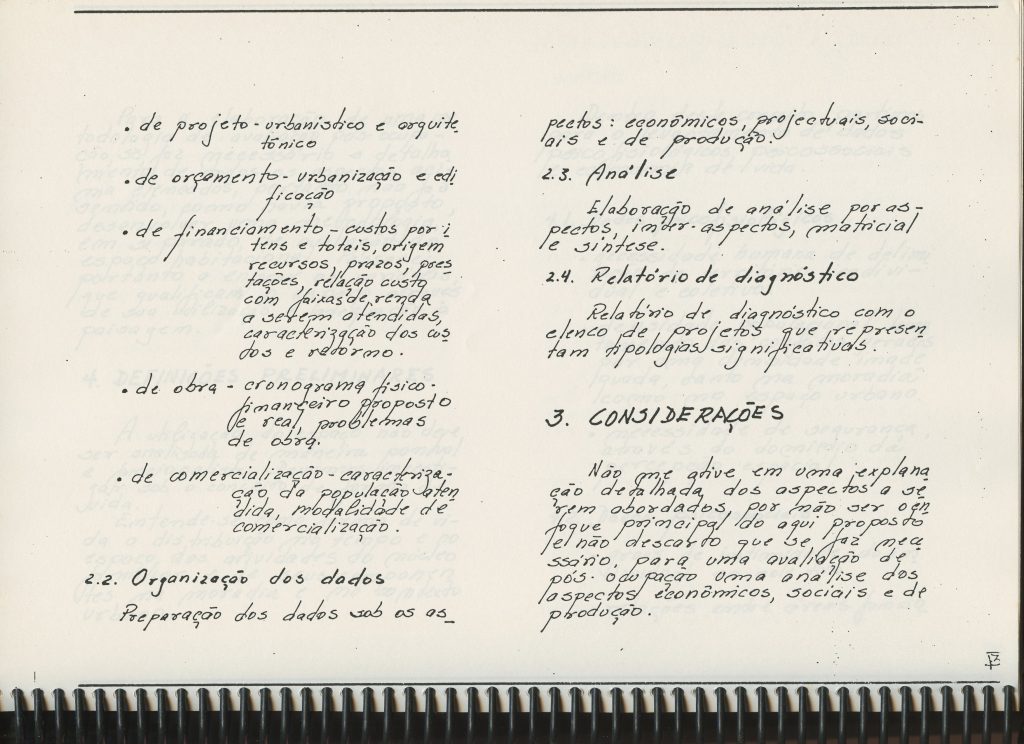 • de projeto - urbanístico e arquite
tônico
• de orçamento - urbanização e edi
ficação
• de financiamento - custos por i
tens e totais, origem
recursos, prazos, pres
tações, relação custo
com faixas de renda
a serem atendidas,
caracterização dos cus
tos e retorno.
• de obra - cronograma físico-
financeiro proposto
e real, problemas
de obra.
• de comercialização - caracteriza-
ção da população aten
dida, modalidade de
comercialização.
2.2. Organização dos dados
Preparação dos dados sob os as_
pectos: econômicos, projectuais, soci-
ais e de produção.
2.3. Análise
Elaboração de análise por as-
pectos, inter-aspectos, matricial
e síntese.
2.4. Relatório de diagnóstico
Relatório de diagnóstico com o
elenco de projetos que represen
tam tipologias significativas.
3. CONSIDERAÇÕES
Não me ative em uma explana
ção detalhada dos aspectos a se
rem abordados, por não ser o en
foque principal do aqui proposto
e não descarto que se faz nece
ssário, para uma avaliação de
pós-ocupação uma análise dos
aspectos econômicos, sociais e de
produção.